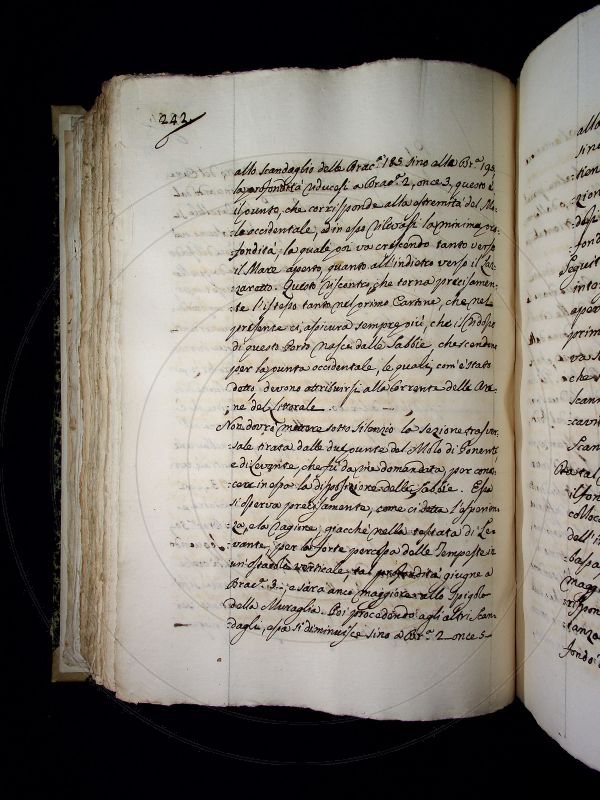 242
allo scandaglio delle Brac.ª 185 sino alla Br.ª 195
la profondità riducesi a Brac.ª 2, once 3, questo è
il punto, che corrisponde alla estremità del Mo-
-lo occidentale, ed in esso rilevasi la minima pro-
-fondità, la quale poi va crescendo tanto verso
il Mare aperto, quanto all'indietro verso il La-
-zaretto. Questo riscontro, che torna precisamen-
-te l'istesso tanto nel primo Cartone, che nel
presente ci assicura sempre più, che il ridosso
di questo Porto nasce dalle Sabbie che scendono
per la punta occidentale, le quali, com'è stato
detto devono attribuirsi alla Corrente delle Are-
-ne del littorale.
Non dovrò mettere sotto silenzio la Sezione trasver-
-sale tirata dalle due punte del Molo di Ponente,
e di Levante, che fu da me domandata, per cono-
-scere in essa la disposizione delle Sabbie. Essa
si osserva precisamente, come ci detta l'esperien-
-za, e la ragione, giacchè nella testata di Le-
-vante, per la forte percossa delle Tempeste in
un ostacolo verticale, la profondità giugne a
Brac.ª 3-, e sarà anco maggiore allo Spigolo
della Muraglia. Poi procedendo agli altri Scan-
-dagli, essa si diminuisce sino a Br.ª 2 once 5-
allo
sino
fond
Seguit
apert
prim
che v
Scan
Da tal
il fon
colloca
dell'i
bassa
magg
rispon
tanza
fondo